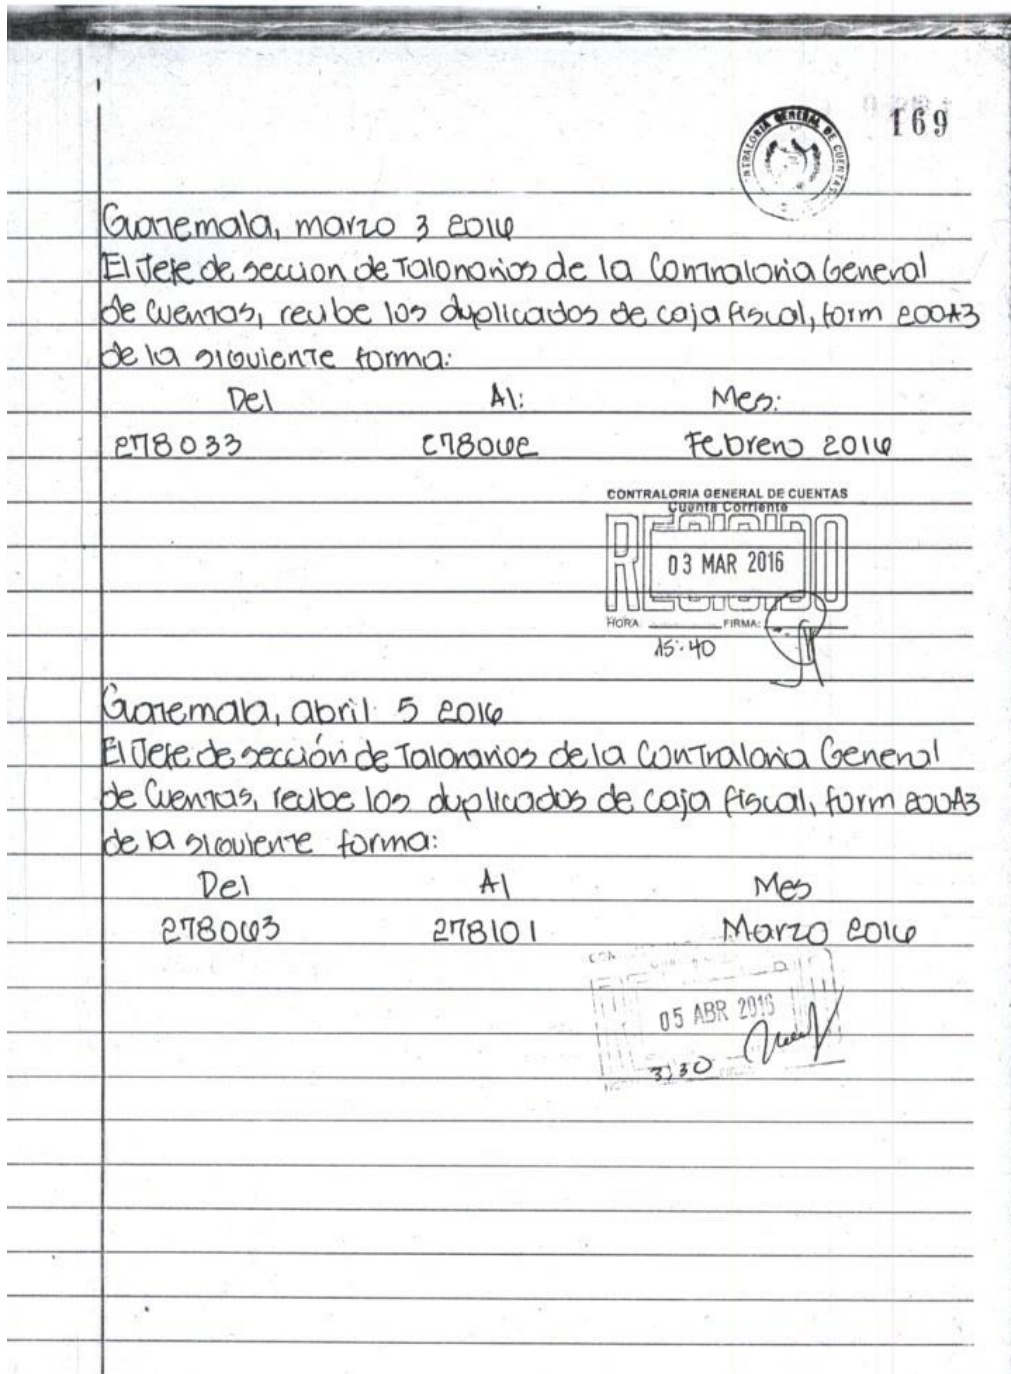 169
CONTRALORIA GENERAL DE CUENTAS
Guatemala, marzo 3 2016
El Jefe de seccion de Talonarios de la Contraloria General
de Cuentas, recibe los duplicados de caja fiscal, form 200A3
de la siguiente forma:
Del Al: Mes:
278033 278062 Febrero 2016
CONTRALORIA GENERAL DE CUENTAS
Cuenta Corriente
RECIBIDO
03 MAR 2016
HORA: FIRMA:
15:40
Guatemala, abril 5 2016
El Jefe de sección de Talonarios de la Contraloria General
de Cuentas, recibe los duplicados de caja fiscal, form 200A3
de la siguiente forma:
Del Al Mes
278063 278101 Marzo 2016
05 ABR 2016
3:30